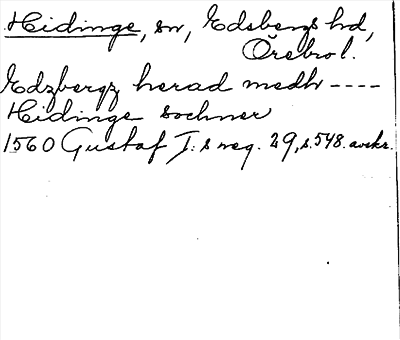 Hidinge, sn, Edsbergs hd,
Örebro l.
Edzbergz herad medh ----
Hidinge sochner
1560 Gustaf I:s reg. 29, s. 548. avskr.